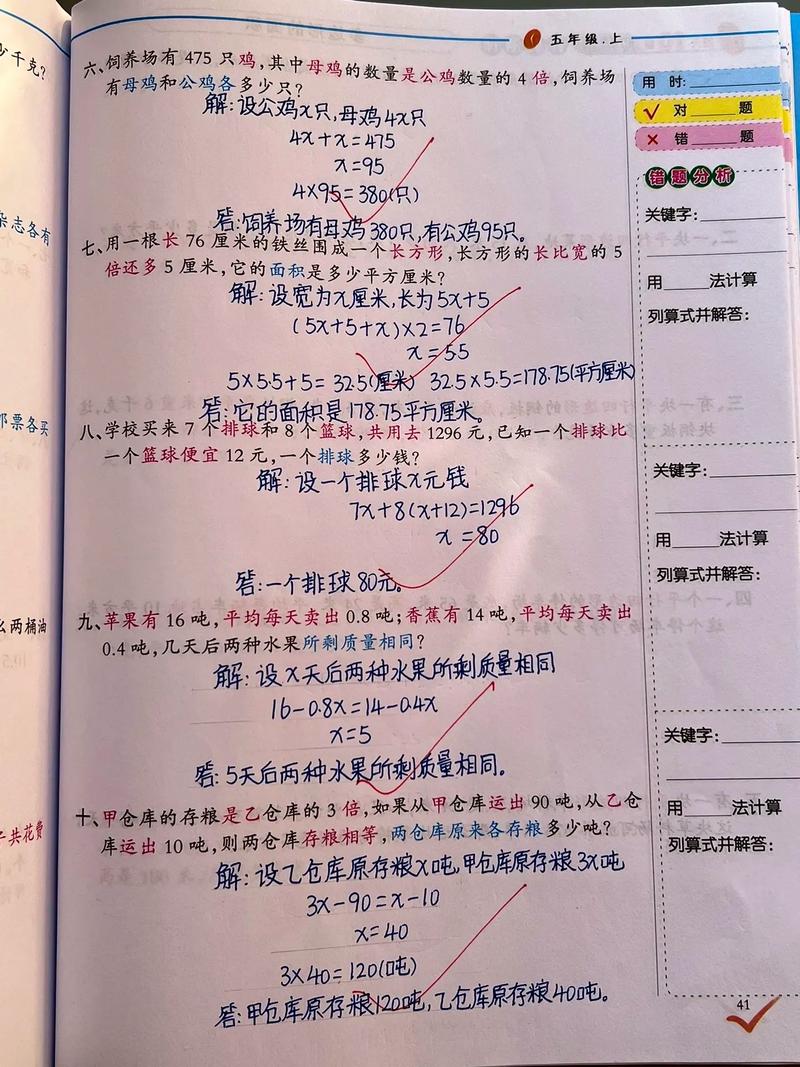 五年级.上
少千克?
杂志各有
邮票各买
么两桶油
子共花费
六、饲养场有 475 只鸡,其中母鸡的数量是公鸡数量的 4 倍,饲养场
有母鸡和公鸡各多少只?
解:设公鸡x只,母鸡4x只
4x+x=475
x=95
4×95=380(只)
答:饲养场有母鸡380只,有公鸡95只。
七、用一根长 76 厘米的铁丝围成一个长方形,长方形的长比宽的 5
倍还多 5 厘米,它的面积是多少平方厘米?
解:设宽为x厘米,长为5x+5
(5x+5+x)×2=76
x=5.5
5×5.5+5=32.5(厘米) 32.5×5.5=178.75(平方厘米)
答:它的面积是178.75平方厘米。
八、学校买来 7 个排球和 8 个篮球,共用去 1296 元,已知一个排球比
一个篮球便宜 12 元,一个排球多少钱?
解:设一个排球x元钱
7x+8(x+12)=1296
x=80
答:一个排球80元。
九、苹果有 16 吨,平均每天卖出 0.8 吨;香蕉有 14 吨,平均每天卖出
0.4 吨,几天后两种水果所剩质量相同?
解:设x天后两种水果所剩质量相同
16-0.8x=14-0.4x
x=5
答:5天后两种水果所剩质量相同。
十、甲仓库的存粮是乙仓库的 3 倍,如果从甲仓库运出 90 吨,从乙仓
库运出 10 吨,则两仓库存粮相等,两仓库原来各存粮多少吨?
解:设乙仓库原存粮x吨,甲仓库原存粮3x吨
3x-90=x-10
x=40
3×40=120(吨)
答:甲仓库原存粮120吨,乙仓库原存粮40吨。
用 时:
✓ 对 题
× 错 题
错题分析
关键字:
用 法计算
列算式并解答:
关键字:
用 法计算
列算式并解答:
关键字:
用 法计算
列算式并解答:
41